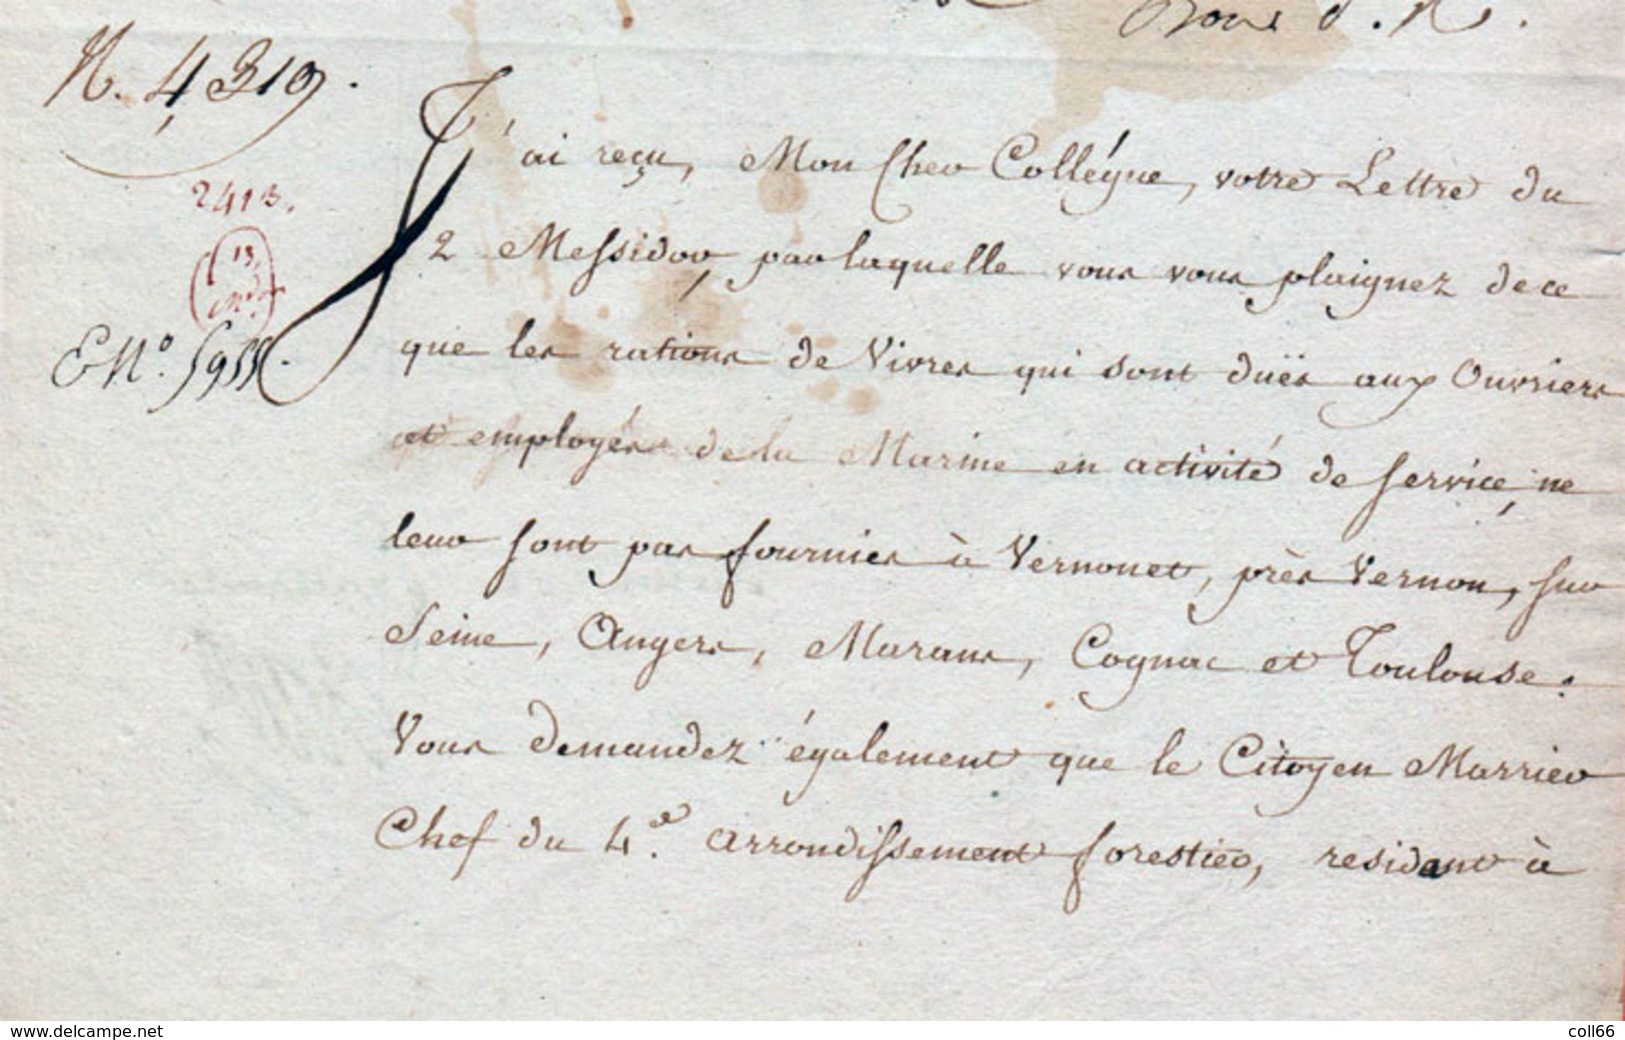 N. 4,319.
2413.
13
E N.º 5955.
J'ai reçu, Mon Cher Collégue, votre Lettre du
2 Messidor, par laquelle vous vous plaignez de ce
que les rations de Vivres qui sont duës aux Ouvriers
et employés de la Marine en activité de service, ne
leur sont pas fournies à Vernonet, près Vernon, sur
Seine, Angers, Marans, Cognac et Toulouse.
Vous demandez également que le Citoyen Marrier
Chef du 4.e arrondissement forestier, residant à
www.delcampe.net
coll66